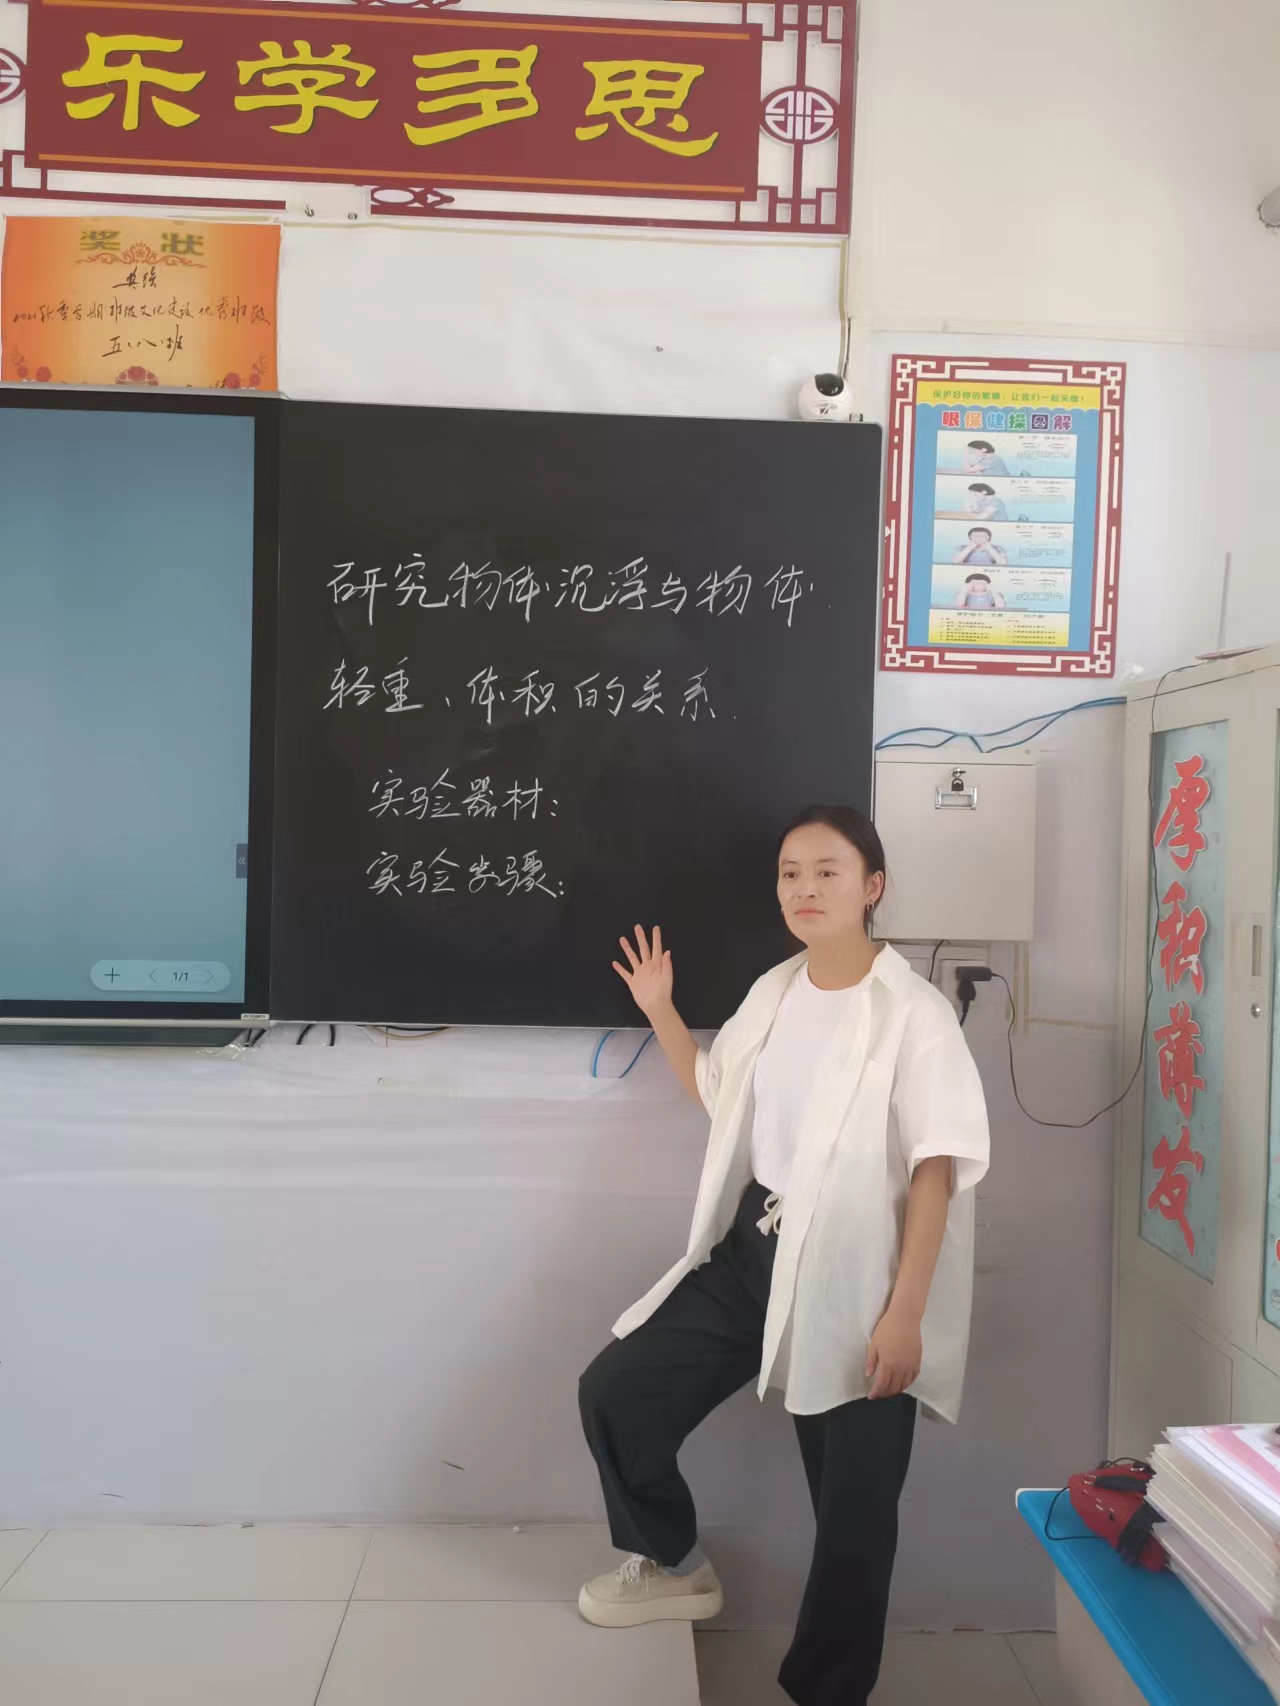 乐学多思
奖状
2021秋季学期班级文化建设优秀班级
五、八班
保护好你的眼睛，让我们一起来做！
眼保健操图解
研究物体沉浮与物体
轻重、体积的关系.
实验器材：
实验步骤：
1/1
厚积薄发